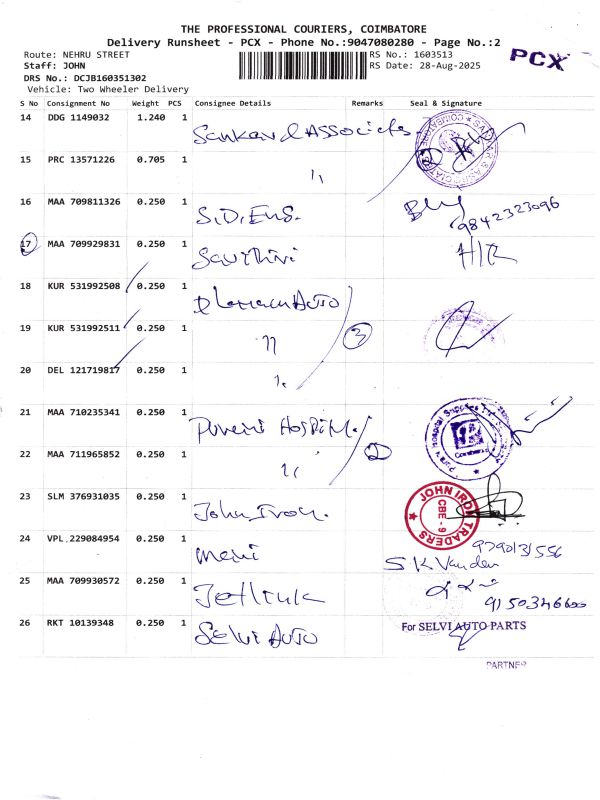 THE PROFESSIONAL COURIERS, COIMBATORE
Delivery Runsheet - PCX - Phone No.:9047080280 - Page No.:2
PCX
Route: NEHRU STREET RS No.: 1603513
Staff: JOHN RS Date: 28-Aug-2025
DRS No.: DCJB160351302
Vehicle: Two Wheeler Delivery
S No Consignment No Weight PCS Consignee Details Remarks Seal & Signature
14 DDG 1149032 1.240 1
15 PRC 13571226 0.705 1 ''
16 MAA 709811326 0.250 1 S.D. Eng. 9842323096
17 MAA 709929831 0.250 1
18 KUR 531992508 0.250 1 Auto
19 KUR 531992511 0.250 1 '' 3
20 DEL 121719817 0.250 1 ''
21 MAA 710235341 0.250 1 Hospital
22 MAA 711965852 0.250 1 '' 2
23 SLM 376931035 0.250 1 John Iron. JOHN IRON TRADERS CBE - 9
24 VPL 229084954 0.250 1 Mani 9790131556
S K Vandan
25 MAA 709930572 0.250 1 9150346600
26 RKT 10139348 0.250 1 Selvi Auto For SELVI AUTO PARTS
PARTNER